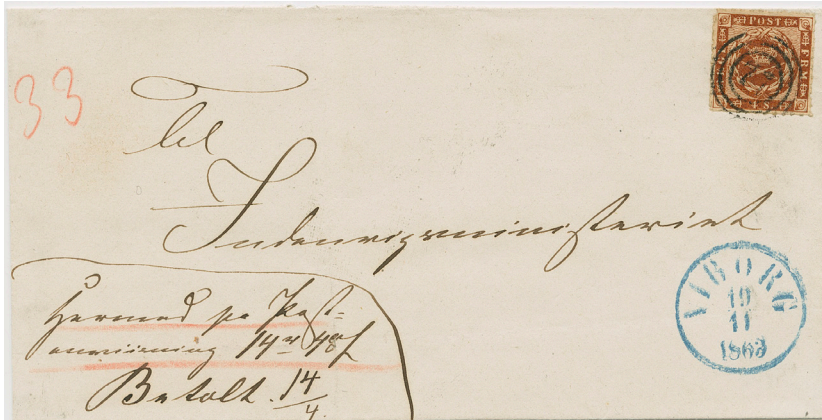 33
POST
FRM
4 S
Til
Indenrigsministeriet
Hermed pr Post-
anviisning 14
Betalt 14
4
VIBORG
10
11
1863